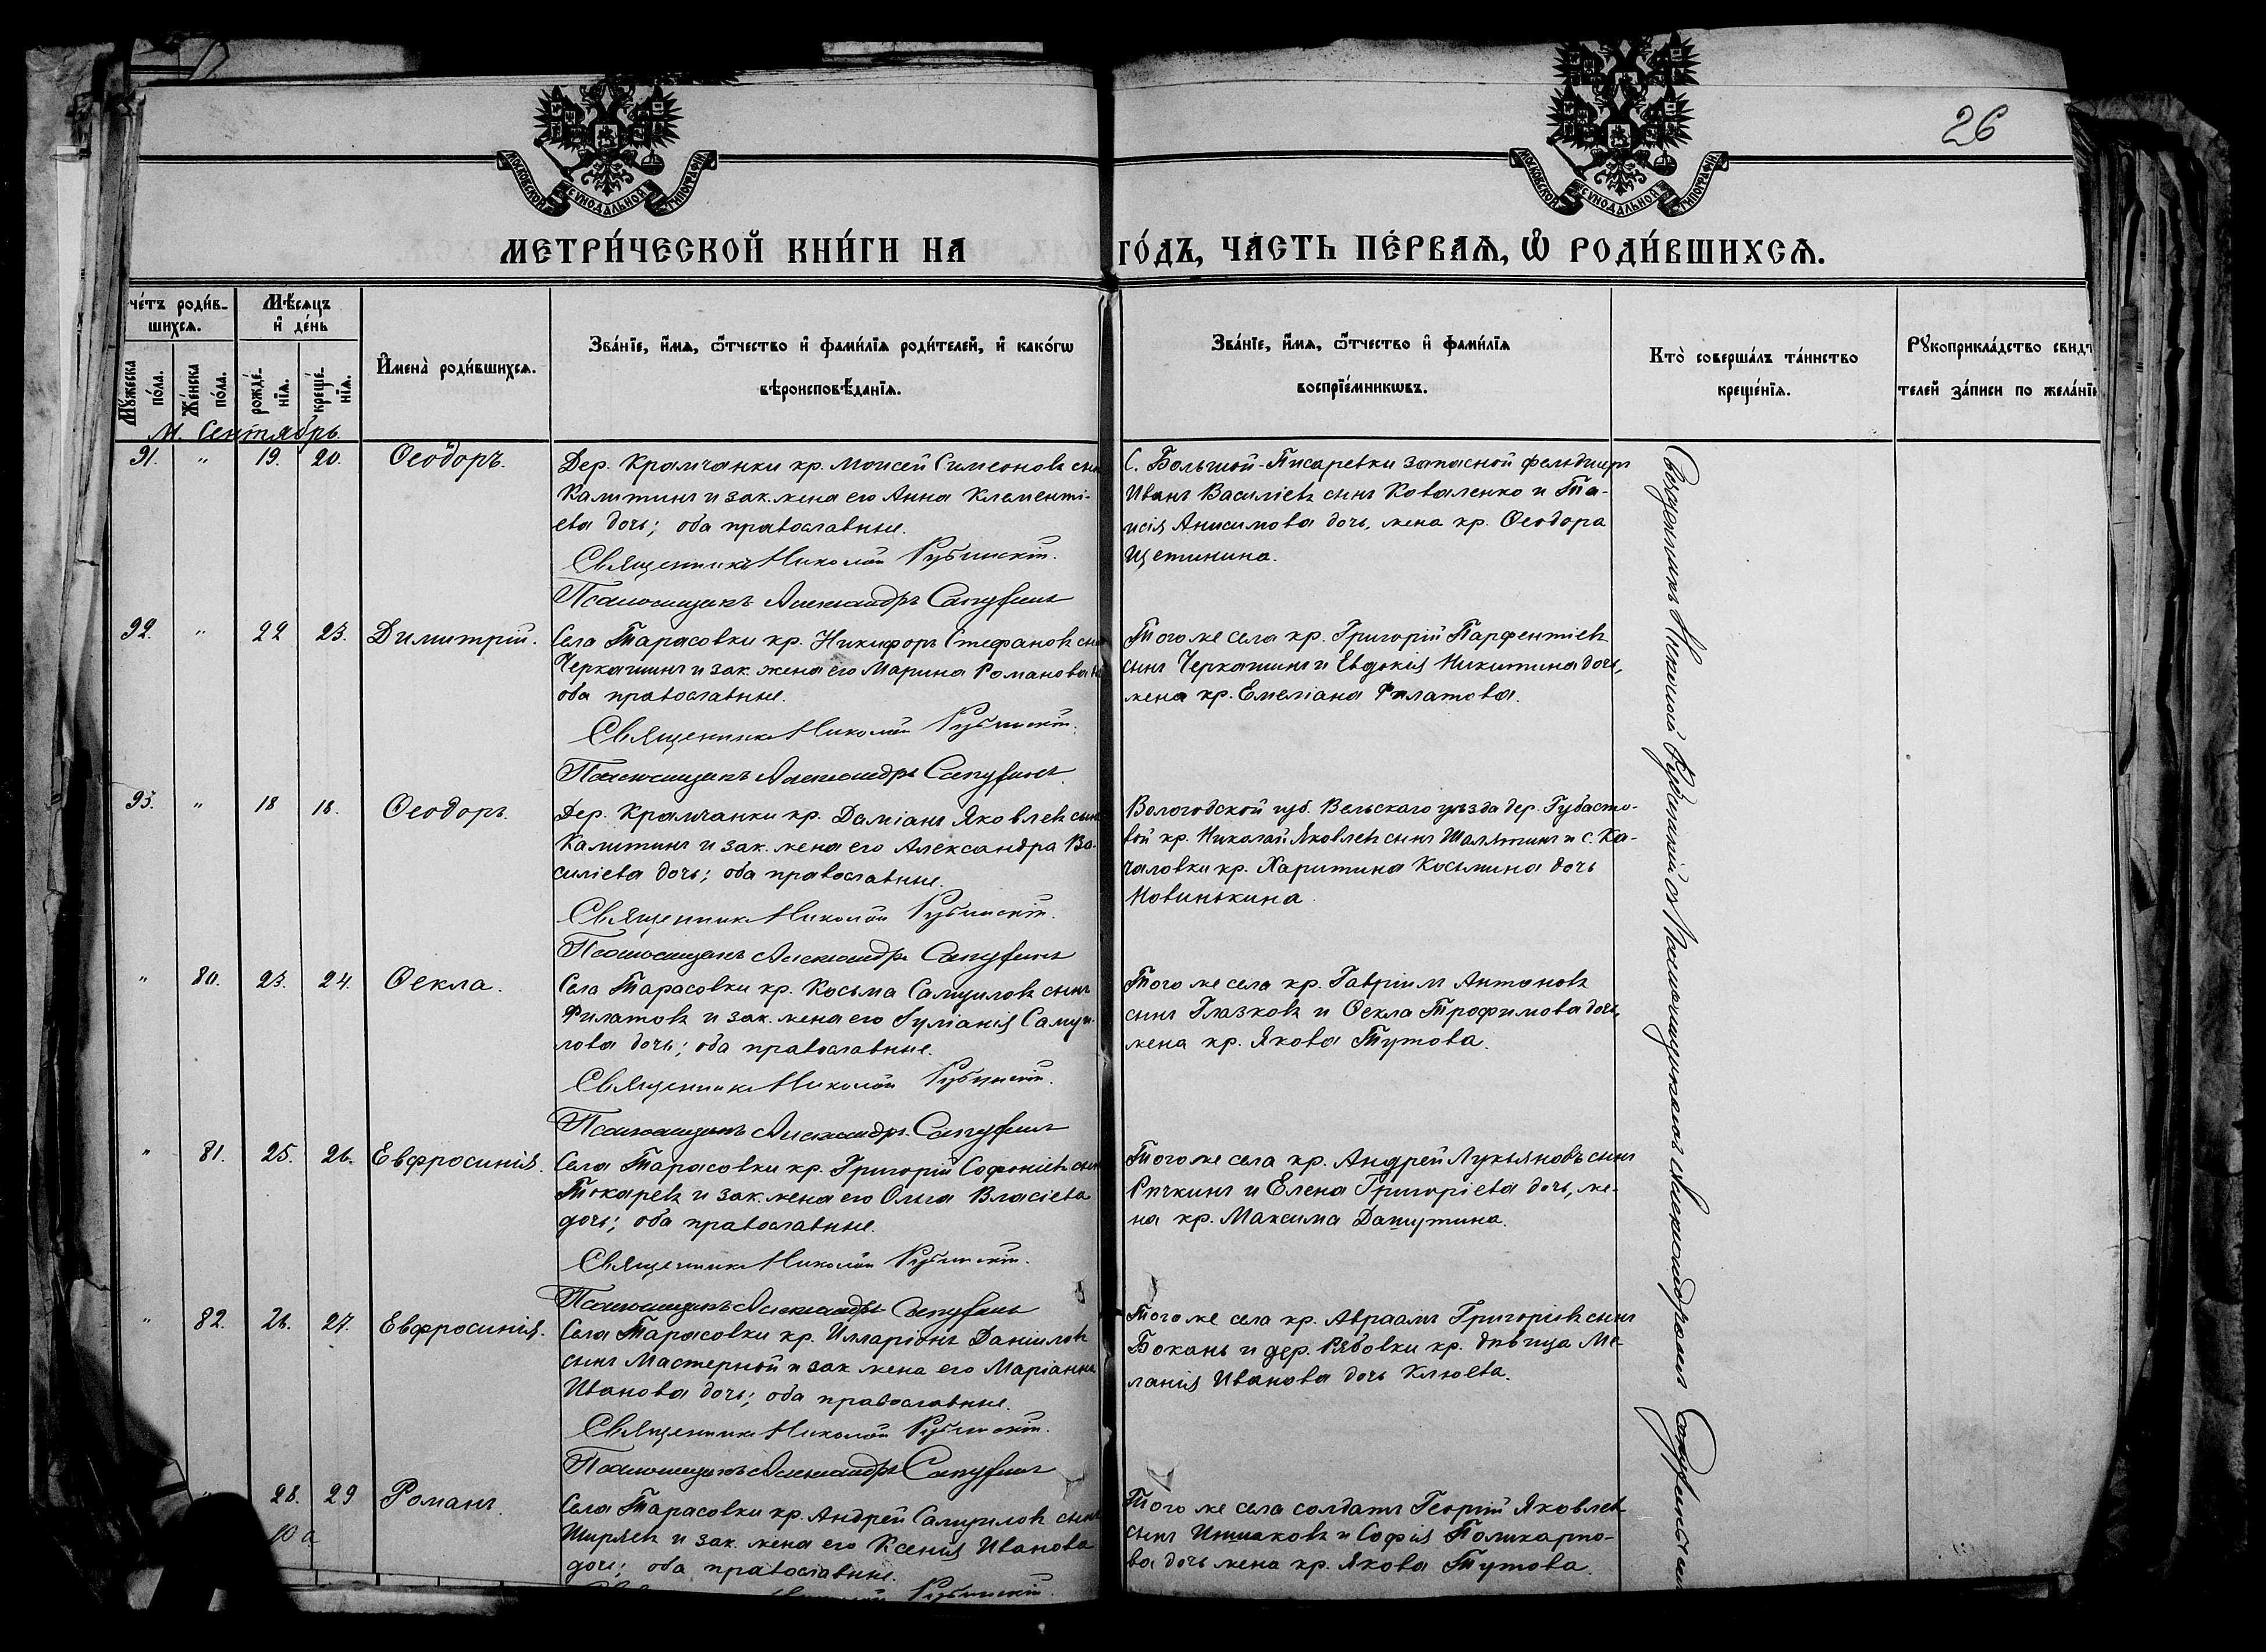 26
МОСКОВСКОЙ СѴНОДАЛЬНОЙ ТИПОГРАФІИ
МОСКОВСКОЙ СѴНОДАЛЬНОЙ ТИПОГРАФІИ
МЕТРИ́ЧЕСКОЙ КНИ́ГИ НА ГО́ДЪ, ЧА́СТЬ ПЕ́РВАЯ, Ѡ РОДИ́ВШИХСЯ.
че́тъ роди́в-
шихся.
Мѣ́сяцъ
и де́нь
Му́жеска
по́ла.
Же́нска
по́ла.
рожде́-
нія.
креще́-
нія.
Имена̀ роди́вшихся.
Зва́ніе, и́мя, ѻ́тчество и фами́лія роди́телей, и како́гѡ
вѣроисповѣ́данія.
Зва́ніе, и́мя, ѻ́тчество и фами́лія
воспріе́мникѡвъ.
Кто̀ соверша́лъ та́инство
креще́нія.
Рꙋкоприкла́дство свидѣ
телей за́писи по жела́нію
М. Сентябрь.
91. " 19. 20. Ѳеодоръ.
Дер. Крамчанки кр. Моисей Симеоновъ сынъ
Калитинъ и зак. жена его Анна Клементі-
ева дочь; оба православные.
Священникъ Николай Рубинскій.
Псаломщикъ Александръ Сапухинъ
С. Большой-Писаревки запасной фельдшеръ
Иванъ Василіевъ сынъ Коваленко и Та-
исія Анисимова дочь, жена кр. Ѳеодора
Щетинина.
92. " 22 23. Димитрій.
Села Тарасовки кр. Никифоръ Стефановъ сынъ
Черкашинъ и зак. жена его Марина Романова
оба православные.
Священникъ Николай Рубинскій.
Псаломщикъ Александръ Сапухинъ
Того же села кр. Григорій Парфентіевъ
сынъ Черкашинъ и Евдокія Никитина дочь,
жена кр. Емеліана Филатова.
93. " 18 18. Ѳеодоръ.
Дер. Крамчанки кр. Даміанъ Яковлевъ сынъ
Калитинъ и зак. жена его Александра Ва-
силіева дочь; оба православные.
Священникъ Николай Рубинскій.
Псаломщикъ Александръ Сапухинъ
Вологодской губ. Вельскаго уѣзда дер. Губасто-
вой кр. Николай Яковлевъ сынъ Шалятинъ и с. Ка-
чаловки кр. Харитина Косьмина дочь
Новинькина.
" 80. 23. 24. Ѳекла.
Села Тарасовки кр. Косьма Самуиловъ сынъ
Филатовъ и зак. жена его Іуліанія Самуи-
лова дочь; оба православные.
Священникъ Николай Рубинскій.
Псаломщикъ Александръ Сапухинъ
Того же села кр. Гавріилъ Антоновъ
сынъ Глазковъ и Ѳекла Трофимова дочь,
жена кр. Якова Тутова.
" 81. 25. 26. Евфросинія.
Села Тарасовки кр. Григорій Софоніевъ сынъ
Токаревъ и зак. жена его Ольга Власіева
дочь; оба православные.
Священникъ Николай Рубинскій.
Псаломщикъ Александръ Сапухинъ
Того же села кр. Андрей Лукьяновъ сынъ
Рѣчкинъ и Елена Григоріева дочь, же-
на кр. Максима Дапутина.
" 82. 26. 27. Евфросинія.
Села Тарасовки кр. Илларіонъ Даніиловъ
сынъ Мастерной и зак. жена его Маріанна
Иванова дочь; оба православные.
Священникъ Николай Рубинскій.
Псаломщикъ Александръ Сапухинъ
Того же села кр. Авраамъ Григоріевъ сынъ
Бокань и дер. Рябовки кр. дѣвица Ме-
ланія Иванова дочь Клюева.
" 28. 29 Романъ.
Села Тарасовки кр. Андрей Самуиловъ сынъ
Ширяевъ и зак. жена его Ксенія Иванова
дочь; оба православные.
Рубинскій.
Того же села солдатъ Георгій Яковлевъ
сынъ Ишаковъ и Софія Поликарпо-
ва дочь жена кр. Якова Тутова.
Священникъ Николай Рубинскій съ Псаломщикомъ Александромъ Сапухинымъ